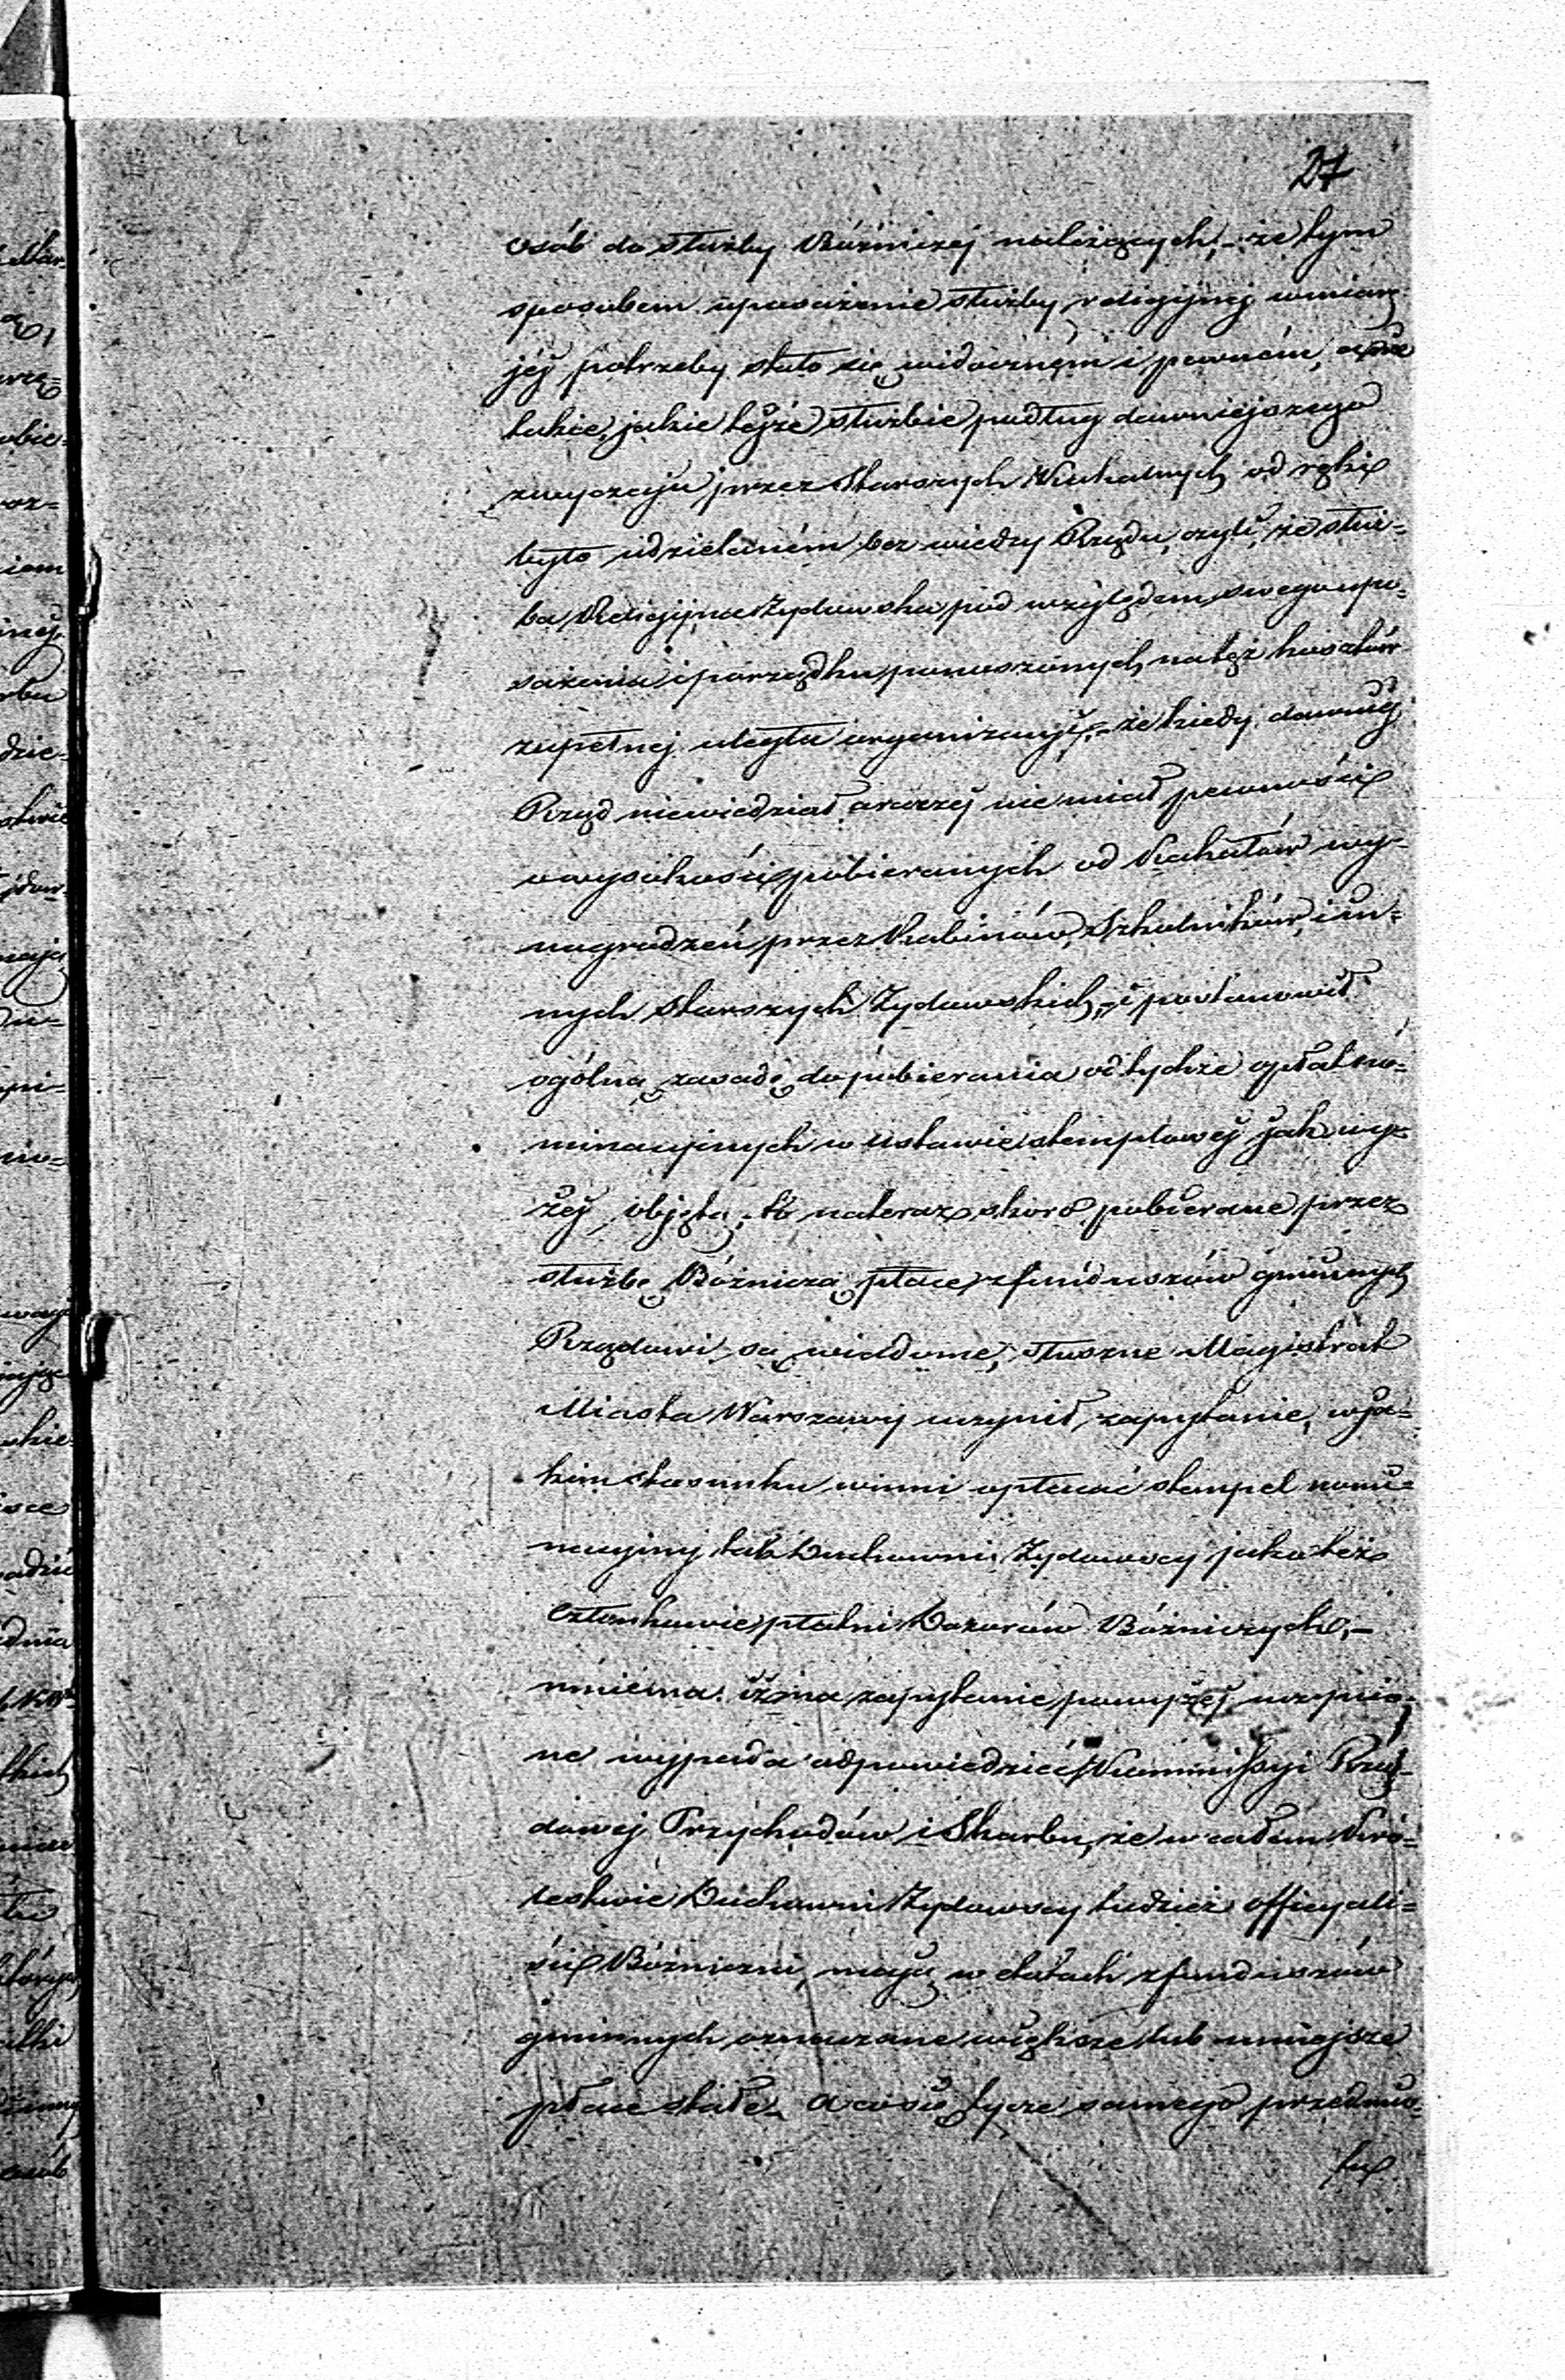 27
osób do służby Bóżniczej należących, – że tym
sposobem uposażenie służby religijnej w miarę
jéj potrzeby stało się widocznem i pewném, a nie
takie, jakie téjże służbie podług dawniejszego
zwyczaju przez Starszych Kahalnych od ręki
było udzielaném bez wiedzy Rządu, czyli, że służ=
ba Religijna Żydowska pod względem swego upo=
sażenia i porządku ponoszonych na też kosztów
zupełnej uległa organizacyi, – że kiedy dawniej
Rząd niewiedział a raczej nie miał pewności
o wysokości pobieranych od Kahałów wy=
nagrodzeń przez Rabinów, Szkolników, i in=
nych starszych Żydowskich, – i postanowił
ogólną zasadę do pobierania od tychże opłat no=
minacyjnych w ustawie stemplowéj jak wy=
żéj objętą, to na teraz skoro pobierane przez
służbę Bóżniczą płace z funduszów gminnych
Rządowi są wiadome, słuszne Magistrat
Miasta Warszawy uczynił zapytanie, w ja=
kim stosunku winni opłacać stempel nomi=
nacyjny tak Duchowni Żydowscy jako też
członkowie płatni Dozorów Bóżniczych, –
mniema. iż na zapytanie powyżéj uczynio=
ne wypada odpowiedzieć Kommissyi Rzą=
dowej Przychodów i Skarbu, że w całém Kró=
lestwie Duchowni Żydowscy tudzież officyali=
ści Bóżniczni, mają w etatach z funduszów
gminnych oznaczone większe lub mniejsze
płace stałe. a co się tycze samego przedmio=
tu